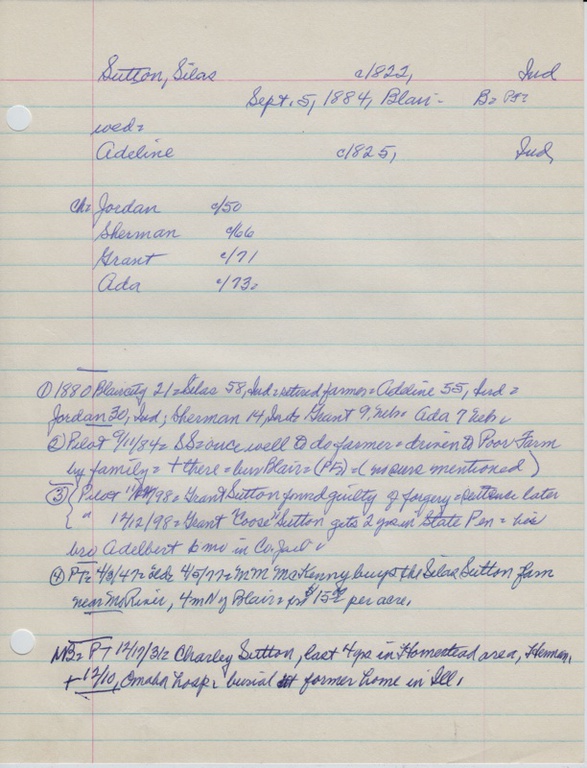 Sutton, Silas c/1822, Ind
Sept. 5, 1884, Blair - B= PF?
wed=
Adeline c/825, Ind,
Ch= Jordan c/50
Sherman c/66
Grant c/71
Ada c/73=
① 1880 Blair city 21 = Silas 58, Ind = retired farmer = Adeline 55, Ind =
Jordan 30, Ind; Sherman 14, Ind = Grant 9, Neb = Ada 7 Neb.
② Pilot 9/11/84 = SS = once well to do farmer = driven to Poor Farm
by family = + there = bur Blair = (PF) = (no cause mentioned)
③ Pilot /98 = Grant Sutton found guilty of forgery = sentence later
" 1/12/98 = Grant "Coose" Sutton gets 2 yrs in State Pen = his
bro Adelbert 6 mo in Co. Jail.
④ PT= 4/3/47 = 4/5/77 = McKenny buys the Silas Sutton farm
near Mo River, 4 m N of Blair = for $15 per acre.
NB= PT 12/17/31= Charley Sutton, last 4 yrs in Homestead area, Herman,
+ 12/10, Omaha hosp = burial at former home in Ill.